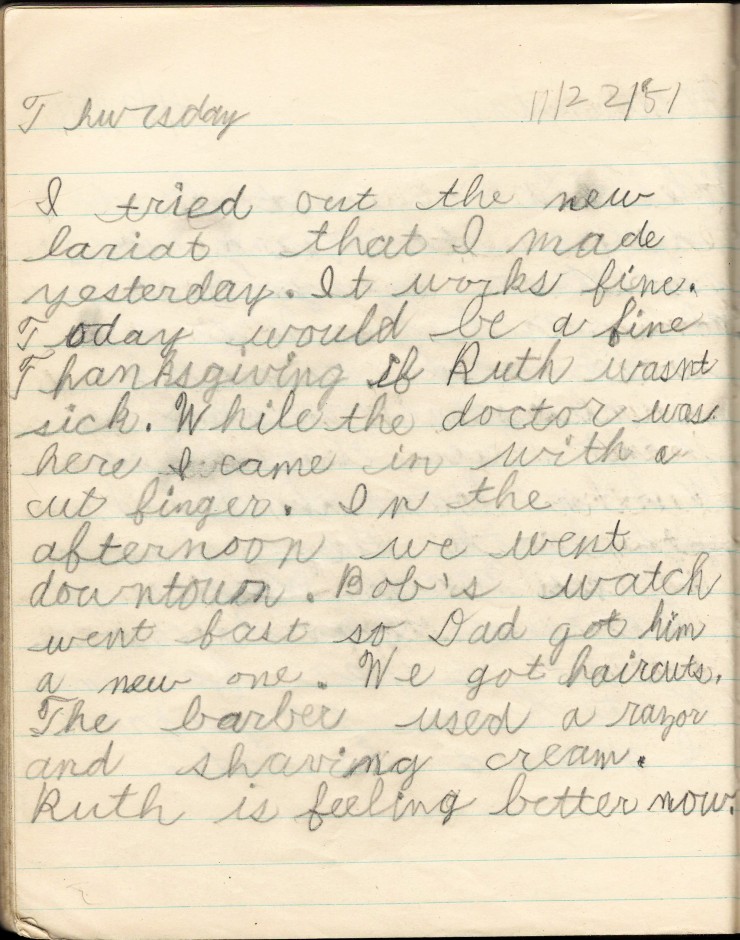 Thursday 11/22/51
I tried out the new
lariat that I made
yesterday. It works fine.
Today would be a fine
Thanksgiving if Ruth wasnt
sick. While the doctor was
here I came in with a
cut finger. In the
afternoon we went
downtown. Bob's watch
went fast so Dad got him
a new one. We got haircuts.
The barber used a razor
and shaving cream.
Ruth is feeling better now.